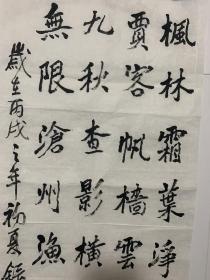 楓林霜葉淨
賈客帆檣雲
九秋查影橫
無限滄州漁
歲在丙戌之年初夏錄